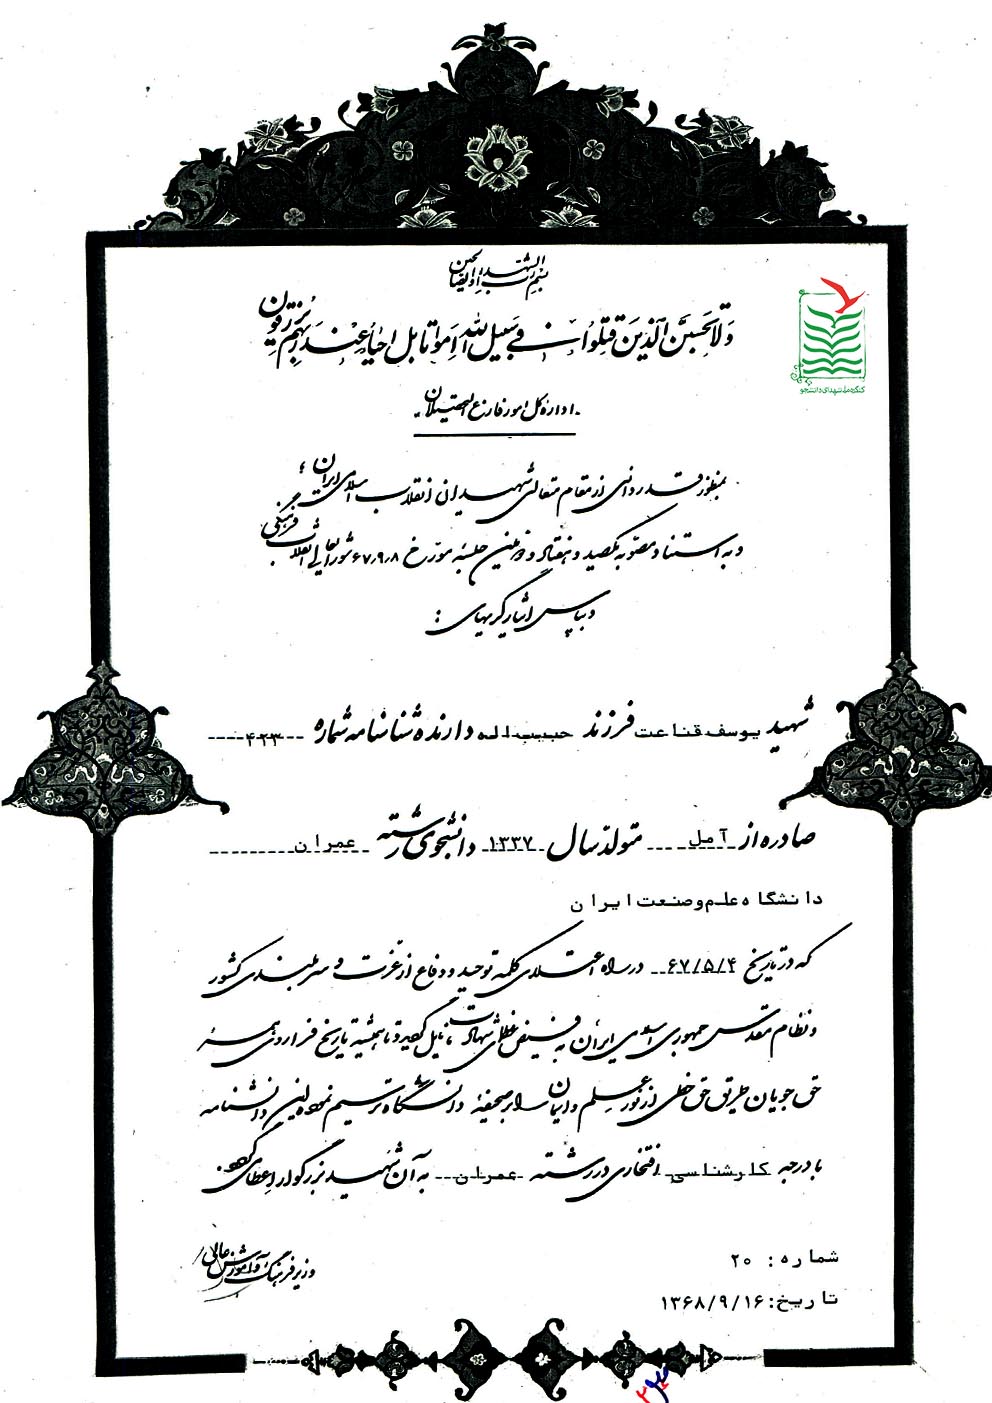 بسم رب الشهداء و الصالحین
ولا تحسبن الذین قتلوا فی سبیل الله امواتا بل احیاء عند ربهم یرزقون
کنگره ملی شهدای دانشجو
اداره کل امور فارغ التحصیلان
بمنظور قدردانی از مقام متعالی شهیدان انقلاب اسلامی ایران ؛
و به استناد مصوبه یکصد و هفتاد و نهمین جلسه مورخ ۶۷٫۹٫۸ شورایعالی انقلاب فرهنگی
و بپاس ایثارگریهای :
شهید یوسف قناعت فرزند حبیب اله دارنده شناسنامه شماره ۴۲۳
صادره از آمل متولد سال ۱۳۳۷ دانشجوی رشته عمران
دانشگاه علم و صنعت ایران
که در تاریخ ۶۷/۵/۴ در راه اعتلای کلمه توحید و دفاع از عزت و سربلندی کشور
و نظام مقدس جمهوری اسلامی ایران به فیض عظمای شهادت نایل گردید و تا همیشه تاریخ فرا روی همه
حق جویان طریق حق خطی از نور علم و ایمان را بر صحیفه دانشگاه ترسیم نموده این دانشنامه
با درجه کارشناسی افتخاری در رشته عمران به آن شهید بزرگوار اعطا میگردد.
شماره : ۲۰
تاریخ: ۱۳۶۸/۹/۱۶
وزیر فرهنگ و آموزش عالی